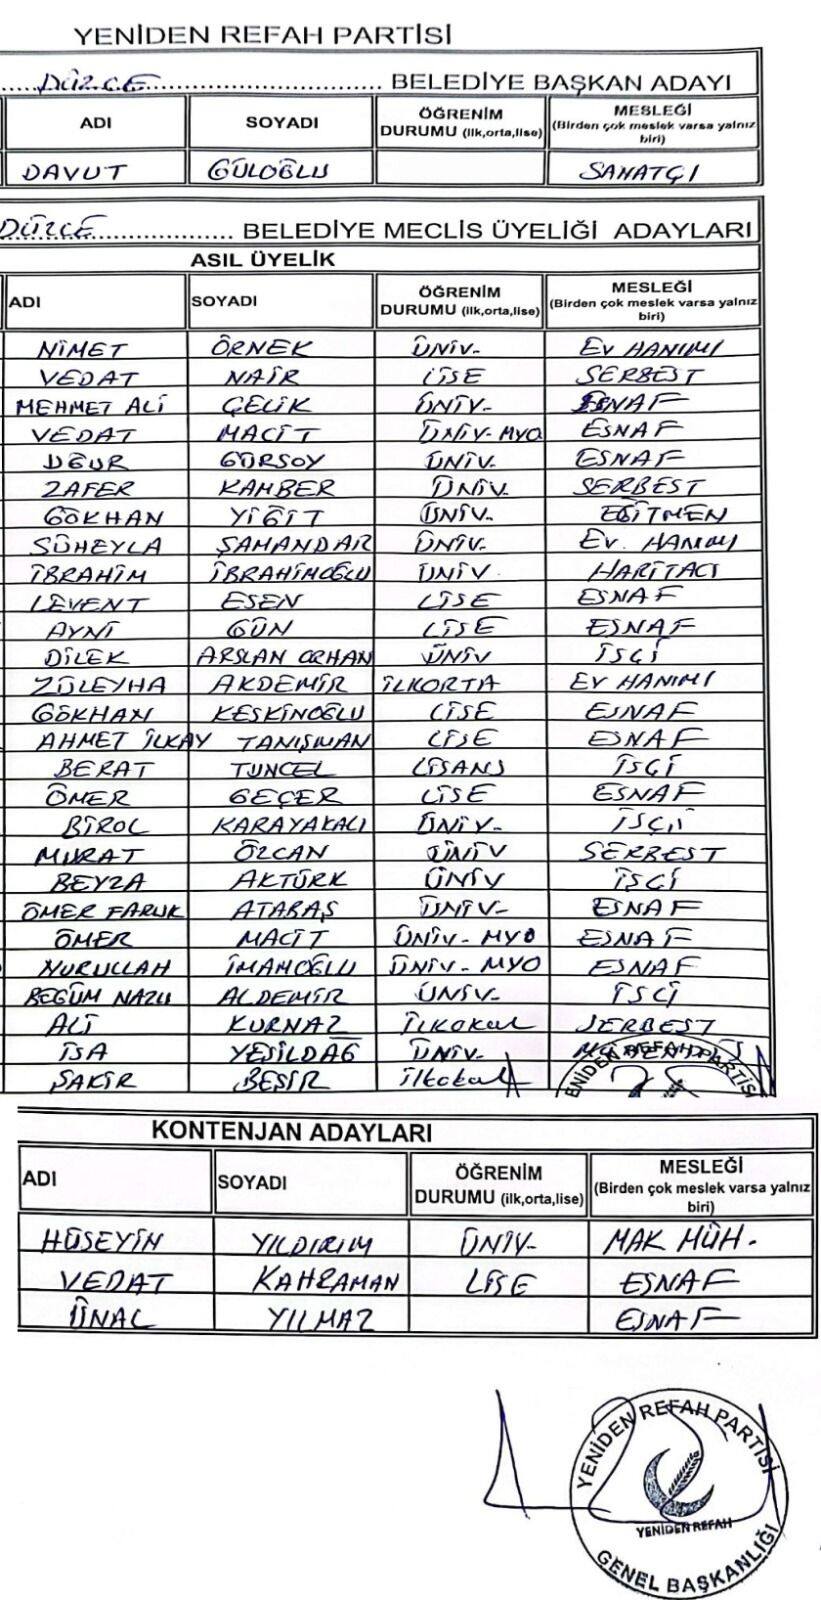 YENİDEN REFAH PARTİSİ
DÜZCE BELEDİYE BAŞKAN ADAYI
ADI SOYADI ÖĞRENİM DURUMU (ilk,orta,lise) MESLEĞİ (Birden çok meslek varsa yalnız biri)
DAVUT GÜLOĞLU SANATÇI
DÜZCE BELEDİYE MECLİS ÜYELİĞİ ADAYLARI
ASIL ÜYELİK
ADI SOYADI ÖĞRENİM DURUMU (ilk,orta,lise) MESLEĞİ (Birden çok meslek varsa yalnız biri)
NİMET ÖRNEK ÜNİV. EV HANIMI
VEDAT NAİR LİSE SERBEST
MEHMET ALİ ÇELİK ÜNİV. ESNAF
VEDAT MACİT ÜNİV-MYO ESNAF
UĞUR GÜRSOY ÜNİV. ESNAF
ZAFER KAMBER ÜNİV. SERBEST
GÖKHAN YİĞİT ÜNİV. EĞİTMEN
SÜHEYLA ŞAMANDAR ÜNİV. EV. HANIMI
İBRAHİM İBRAHİMOĞLU ÜNİV. HARİTACI
LEVENT ESEN LİSE ESNAF
AYNİ GÜN LİSE ESNAF
DİLEK ARSLAN ORHAN ÜNİV İŞÇİ
ZÜLEYHA AKDEMİR İLKORTA EV HANIMI
GÖKHAN KESKİNOĞLU LİSE ESNAF
AHMET İLKAY TANIŞMAN LİSE ESNAF
BERAT TUNCEL LİSANS İŞÇİ
ÖMER GEÇER LİSE ESNAF
BİROL KARAYAKALI ÜNİV. İŞÇİ
MURAT ÖZCAN ÜNİV SERBEST
BEYZA AKTÜRK ÜNİV İŞÇİ
ÖMER FARUK ATABAŞ ÜNİV- ESNAF
ÖMER MACİT ÜNİV-MYO ESNAF
NURULLAH İMAMOĞLU ÜNİV-MYO ESNAF
BEGÜM NAZLI ALDEMİR ÜNİV. İŞÇİ
ALİ KURNAZ İLKOKUL SERBEST
İSA YEŞİLDAĞ ÜNİV.
ŞAKİR BEŞİR İlkokul
YENİDEN REFAH PARTİSİ
KONTENJAN ADAYLARI
ADI SOYADI ÖĞRENİM DURUMU (ilk,orta,lise) MESLEĞİ (Birden çok meslek varsa yalnız biri)
HÜSEYİN YILDIRIM ÜNİV- MAK MÜH.
VEDAT KAHRAMAN LİSE ESNAF
ÜNAL YILMAZ ESNAF
YENİDEN REFAH PARTİSİ
YENİDEN REFAH
GENEL BAŞKANLIĞI